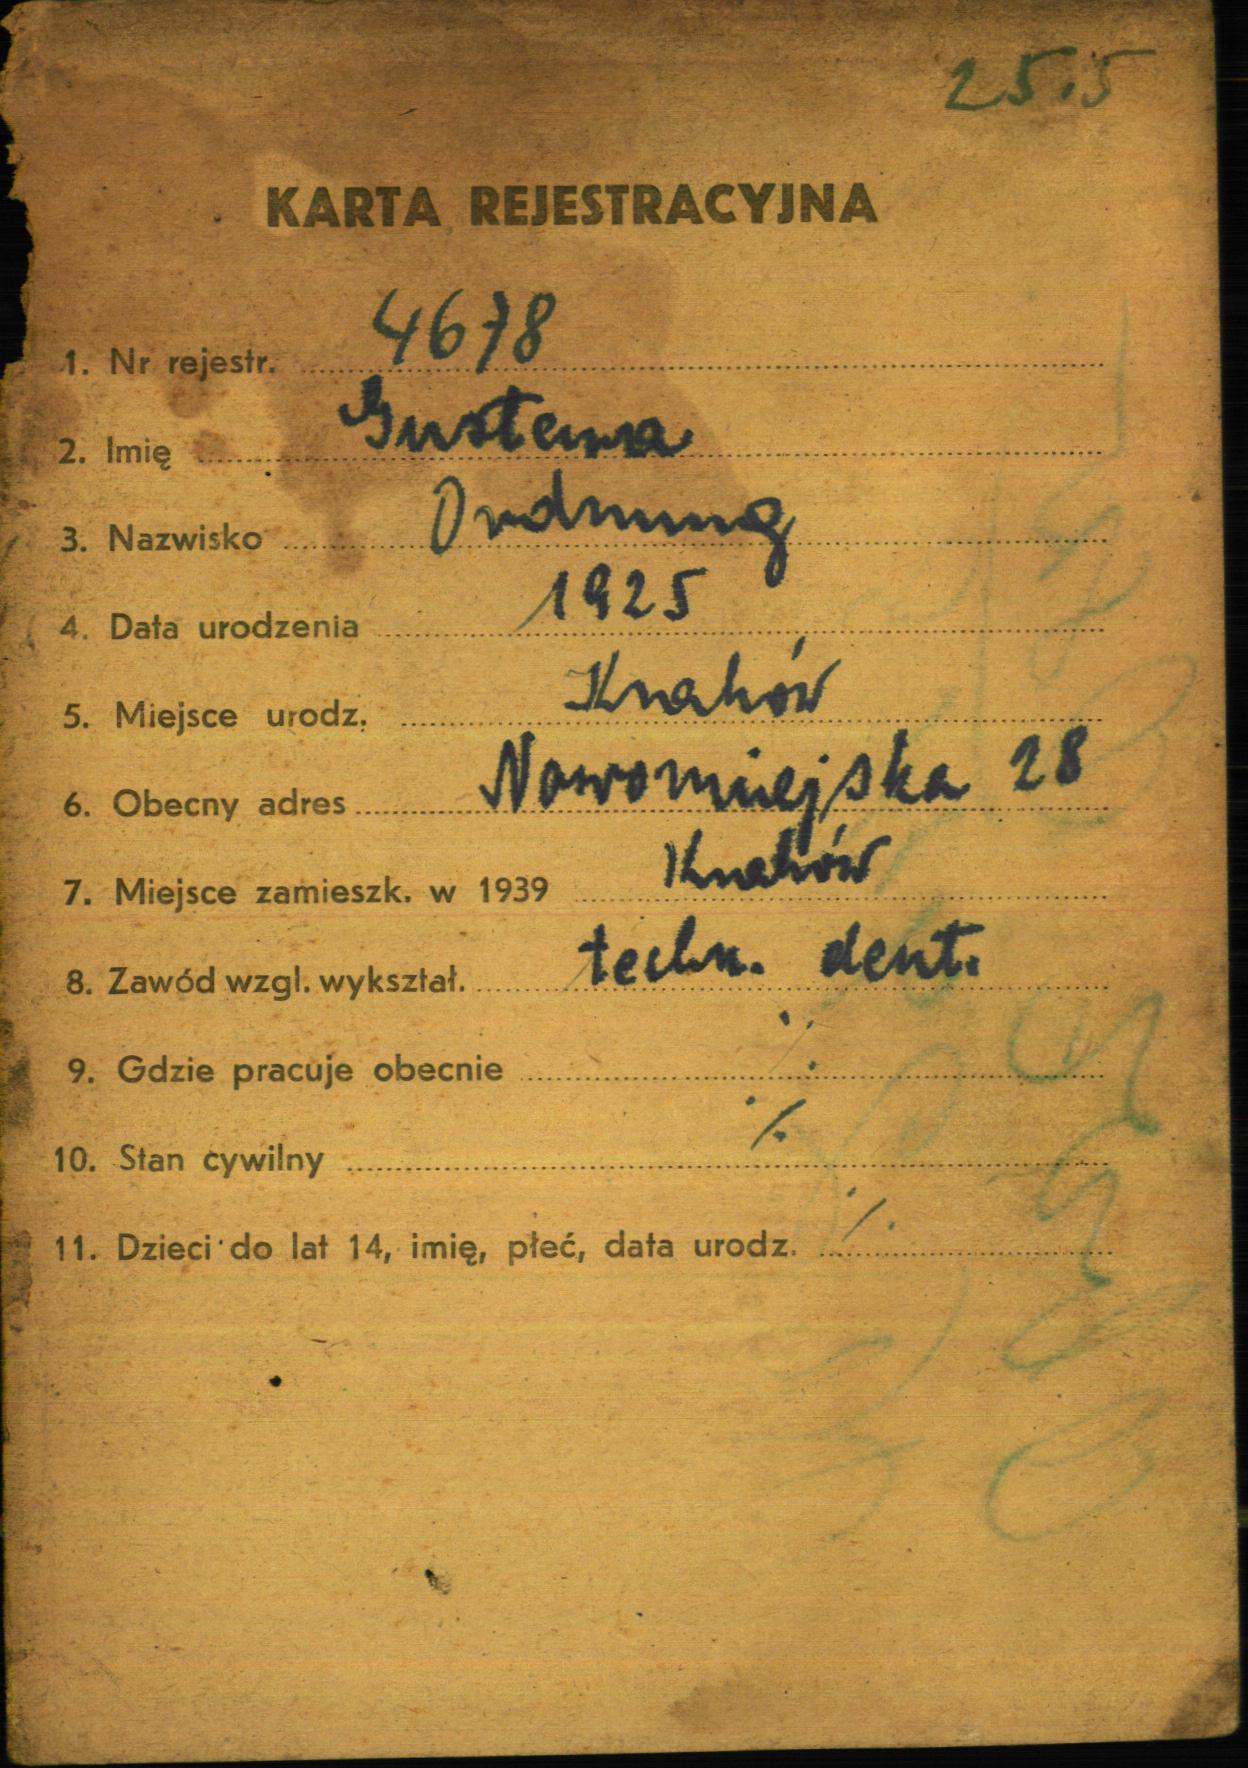 25.5
KARTA REJESTRACYJNA
1. Nr rejestr. 4678
2. Imię Gustawa
3. Nazwisko Ordnung
4. Data urodzenia 1925
5. Miejsce urodz. Kraków
6. Obecny adres Nowomiejska 28
7. Miejsce zamieszk. w 1939 Kraków
8. Zawód wzgl. wykształ. techn. dent.
9. Gdzie pracuje obecnie ·/.
10. Stan cywilny ·/.
11. Dzieci do lat 14, imię, płeć, data urodz. ·/.